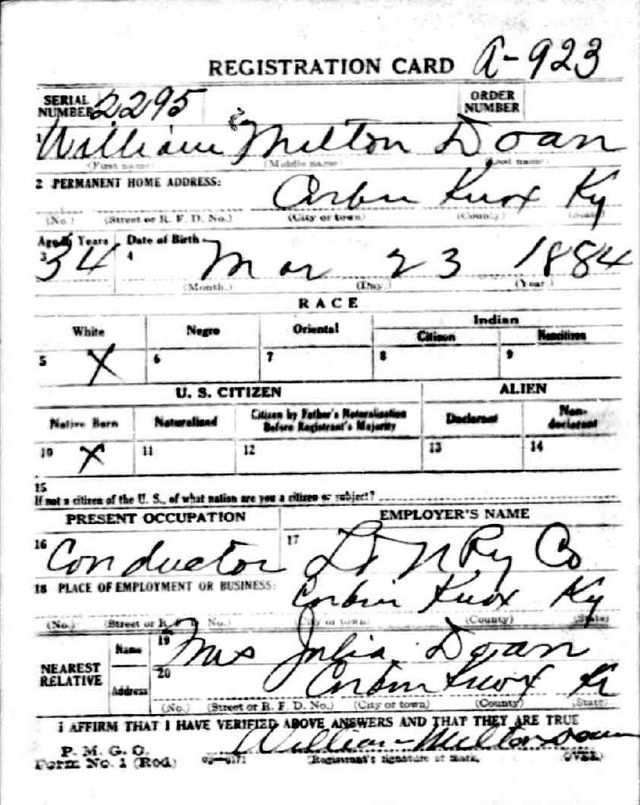 REGISTRATION CARD A-923
SERIAL NUMBER 2295 ORDER NUMBER
William Milton Doan
(First name) (Middle name) (Last name)
2 PERMANENT HOME ADDRESS:
Corbin Knox Ky
(No.) (Street or R. F. D. No.) (City or town) (County) (State)
Age in Years Date of Birth
3 34 4 Mar 23 1884
(Month.) (Day.) (Year.)
RACE
White Negro Oriental Indian
Citizen Noncitizen
5 X 6 7 8 9
U. S. CITIZEN ALIEN
Native Born Naturalized Citizen by Father's Naturalization Before Registrant's Majority Declarant Non-declarant
10 X 11 12 13 14
15
If not a citizen of the U. S., of what nation are you a citizen or subject?
PRESENT OCCUPATION EMPLOYER'S NAME
16 Conductor 17 L & N Ry Co
18 PLACE OF EMPLOYMENT OR BUSINESS:
Corbin Knox Ky
(No.) (Street or R. F. D. No.) (City or town) (County) (State)
NEAREST RELATIVE Name 19 Mrs Julia Doan
Address 20 Corbin Knox Ky
(No.) (Street or R. F. D. No.) (City or town) (County) (State)
I AFFIRM THAT I HAVE VERIFIED ABOVE ANSWERS AND THAT THEY ARE TRUE
P. M. G. O.
Form No. 1 (Red) William Milton Doan
(Registrant's signature or mark) (OVER)